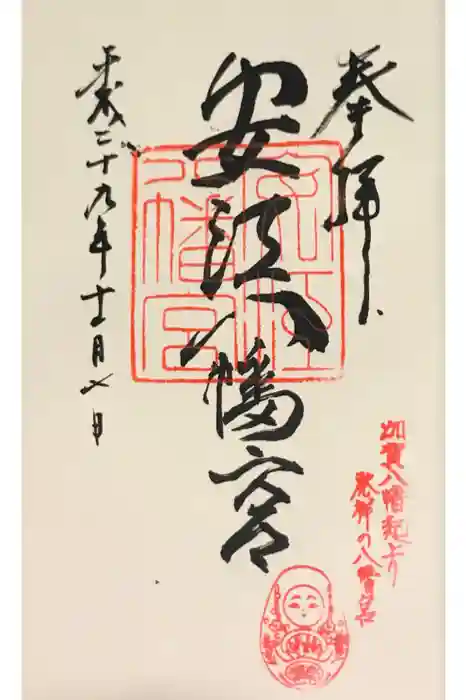 奉拝
安江八幡宮
平成二十九年十一月七日
安江
八幡宮
加賀八幡起上り
発祥の八幡宮